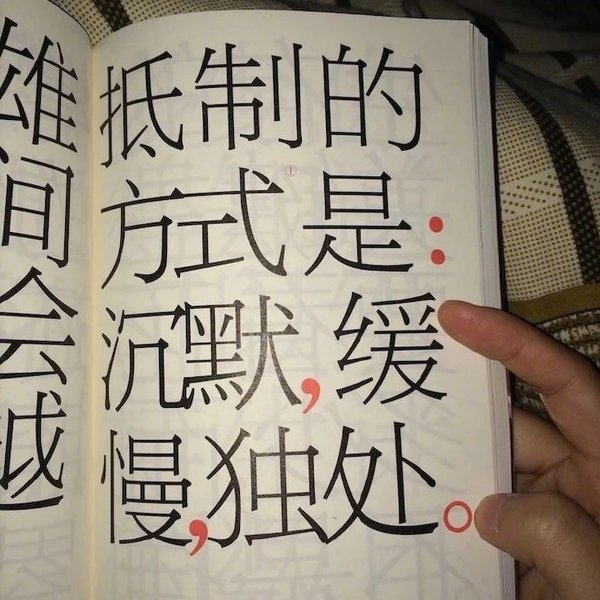 雄
间
会
越
抵制的
①
方式是：
沉默，缓
慢，独处。